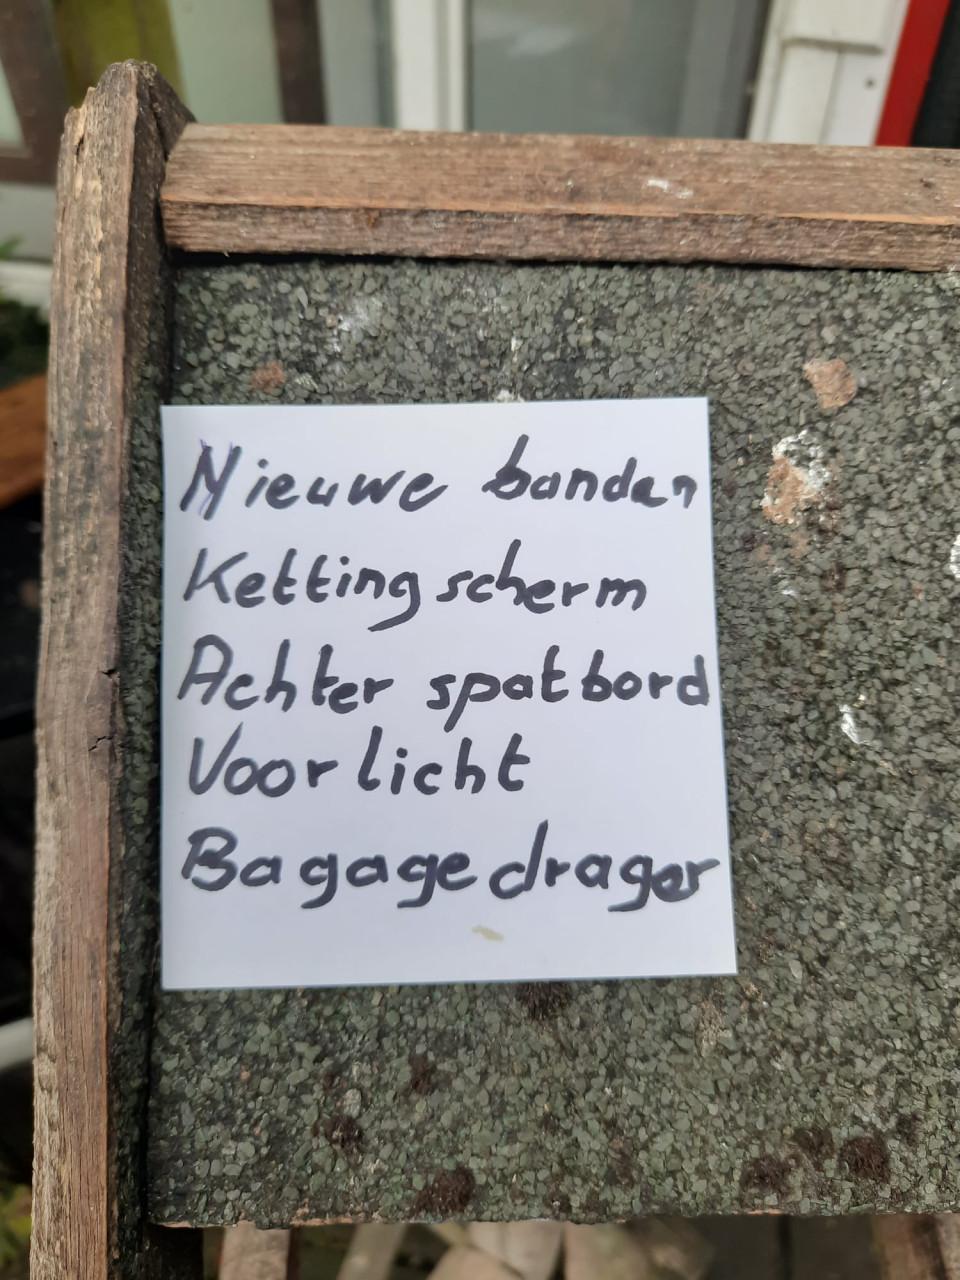 Nieuwe banden
Ketting scherm
Achter spatbord
Voor licht
Bagage drager